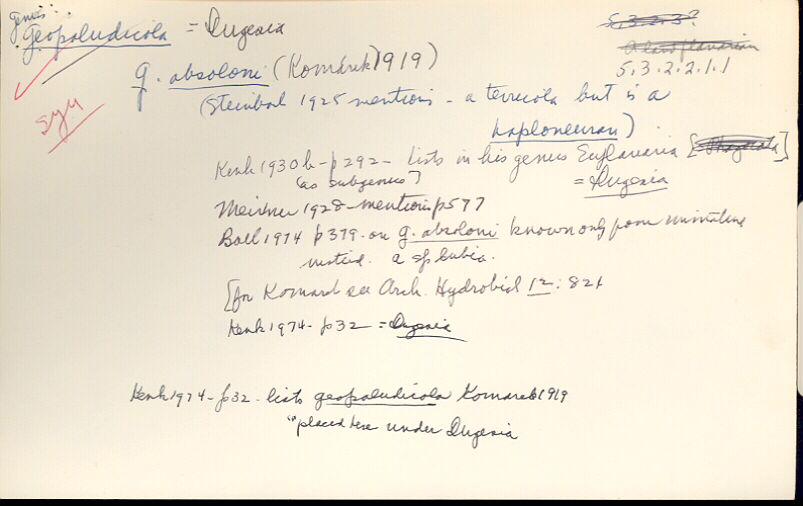 genus:
Geopaludicola = Dugesia
5.3.2.3?
5.3.2.2.1.1
G. absoloni (Komárek 1919)
syn
(Steinböl 1925 mentions - a terricola but is a
haploneuran)
Kenk 1930b - p292 - lists in his genus Euplanaria [Phagocata]
(as subgenus) = Dugesia
Meixner 1928 - mentions p577
Ball 1974 p379. on G. absoloni known only from immature
material. a sp dubia.
[for Komarek see Arch. Hydrobiol 12: 82
Kenk 1974 - p32 = Dugesia
Kenk 1974 - p32 - lists geopaludicola Komarek 1919
"placed here under Dugesia